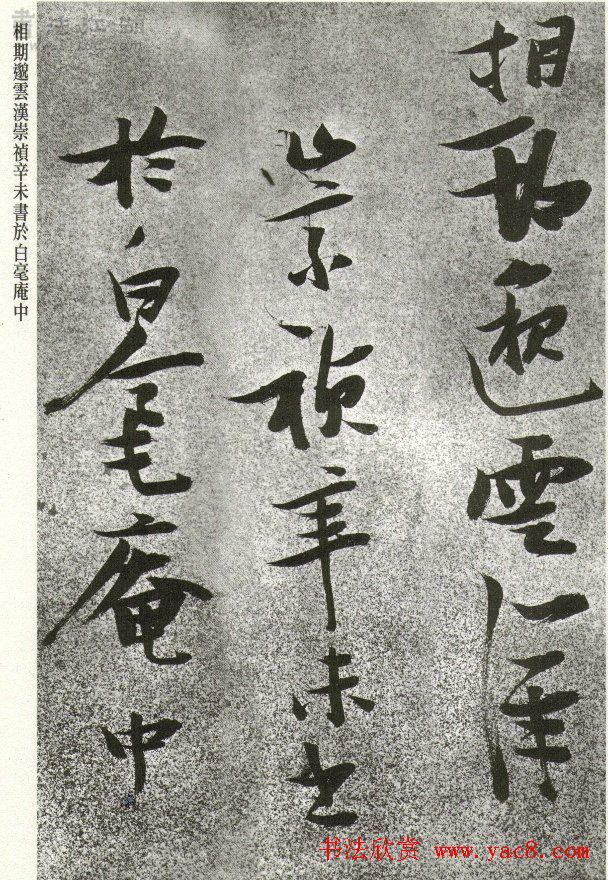 相期邈雲漢
崇禎辛未書
於白毫庵中
相期邈雲漢崇禎辛未書於白毫庵中
书法欣赏 www.yac8.com